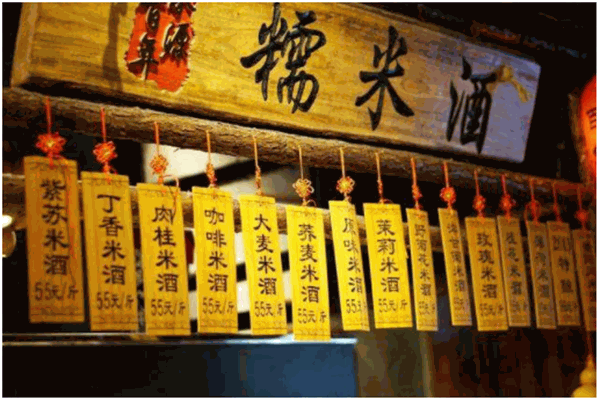 百年
糯米酒
紫苏米酒
55元/斤
丁香米酒
55元/斤
肉桂米酒
55元/斤
咖啡米酒
55元/斤
大麦米酒
55元/斤
荞麦米酒
55元/斤
原味米酒
55元/斤
茉莉米酒
55元/斤
野菊花米酒
55元/斤
米酒
55元/斤
玫瑰米酒
55元/斤
桂花米酒
55元/斤
薄荷米酒
55元/斤
特酿